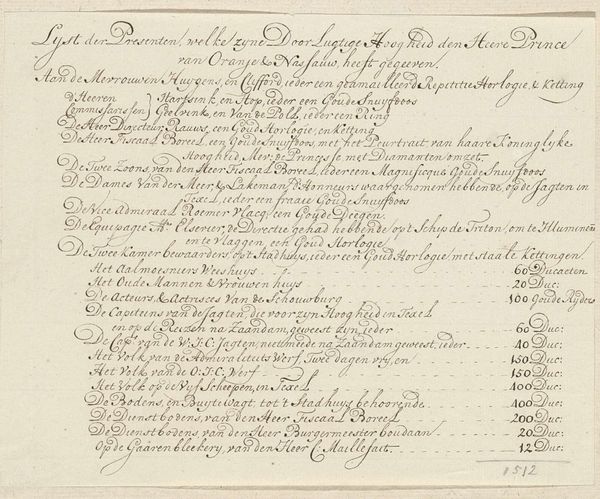 Lyst der Presenten, welke zyne Door Lugtige Hoogheid den Heere Prince
van Oranje & Nassauw, heeft gegeven.
Aan de Mevrouwen Huygens, en Clifford, ieder een geamailleerd Repetitie Horlogie, & Ketting
d'Heeren Commissarissen } Harfsink, en Hop, ieder een Goude Snuyfdoos
Geelvink, en Van de Poll, ieder een Ring
De Heer Directeur Rauws, een Goud Horlogie, en Ketting
De Heer Fiscaal Boreel, een Goude Snuyfdoos, met het Peurtrait van haare Koninglyke
Hoogheid Mev: de Princesse met Diamanten omzet.
De Twee Zoons, van den Heer Fiscaal Boreel, ieder een Magnifique Goude Snuyfdoos
De Dames Van der Meer, & Lakeman, d'Honneurs waargenomen hebbende, op de Jagten in
Texel, ieder een fraaie Goude Snuyfdoos
De Vice Admiraal Roemer Vlacq, een Goude Degen.
De Equipagie Mr. Elsevier, de Directie gehad hebbende, op't Schip de Triton, om te Illumineren
en te Vlaggen, een Goud Horlogie
De Twee Kamerbewaarders, op't Stadhuys, ieder een Goud Horlogie, met staale Kettingen.
Het Aalmoesniers Weeshuys 60 Ducaeten
Het Oude Mannen & Vrouwen huys 20 Duc:
De Acteurs & Actrisces Van de Schouwburg 100 Goude Ryders
De Capiteins van de Jagten die voor zyn Hoogheid in Texel
en op de Reizen na Zaandam, geweest zyn, ieder 60 Duc:
De Capns. van de W: I: C: Jagten, niet mede na Zaandam geweest, ieder 40 Duc:
Het Volk van de Admiraliteits Werf, Twee dagen vry, en 150 Duc:
Het Volk van de O: I: C: Werf 150 Duc:
Het Volk op de Vyf Scheepen, in Texel 400 Duc:
De Bodens, en Buyte Wagt, tot 't Stadhuys behoorende 400 Duc:
De Dienstbodens, van den Heer Fiscaal Boreel 200 Duc:
De Dienstbodens van den Heer Burgermeester Boudaan 20 Duc:
Op de Gaaren bleekery, van den Heer C: Maillefait 12 Duc:
1512